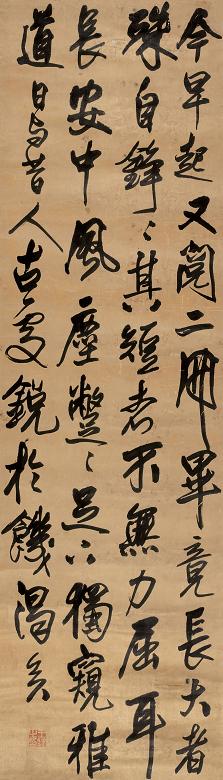 今早起又閱二冊畢竟長大者
殊自錚〻其短者不無力屈耳
長安中風塵蹩〻足下獨窺雅
道日与昔人古處銳於饑渴矣